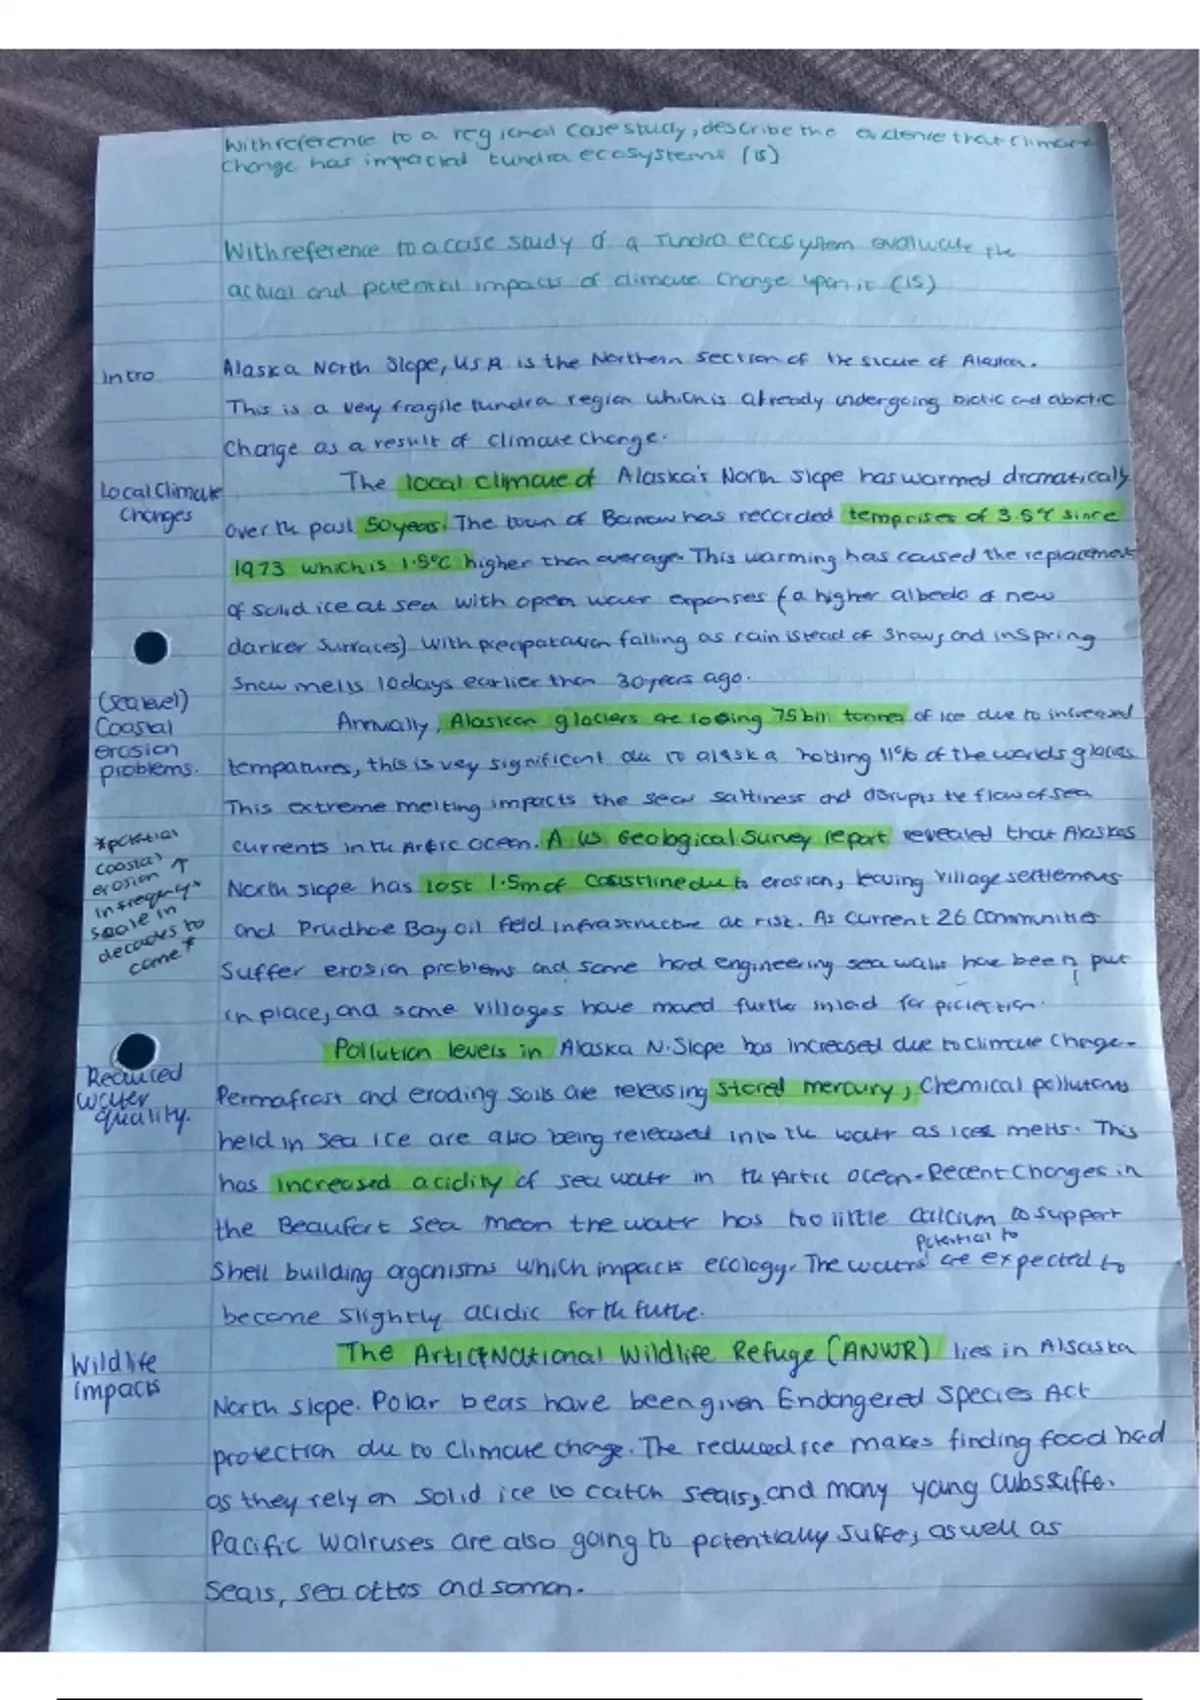 With reference to a regional case study, describe the evidence that climate
change has impacted tundra ecosystems (15)
With reference to a case study of a Tundra eccsystem evaluate the
actual and potential impacts of climate change upon it (15)
Intro
Alaska North Slope, USA is the Northern section of the state of Alaska.
This is a very fragile tundra region which is already undergoing biotic and abiotic
change as a result of climate change.
Local Climate
Changes
The local climate of Alaska's North Slope has warmed dramatically
over the past 50 years. The town of Barrow has recorded temp rises of 3.5°C since
1973 which is 1.5°C higher than average. This warming has caused the replacement
of solid ice at sea with open water expanses (a higher albedo of new
darker surfaces). With precipatation falling as rain istead of snow, and in spring
snow melts 10 days earlier than 30 years ago.
(sea level)
Coastal
erosion
problems.
Annually, Alaskan glaciers are losing 75 bill tonnes of ice due to increased
tempatures, this is vey significant due to alaska holding 11% of the worlds glaciers.
This extreme melting impacts the seas saltiness and disrupts the flow of sea
currents in the Arctic ocean. A US Geological Survey report revealed that Alaskas
North slope has lost 1.5m of coastline due to erosion, leaving village settlements
and Prudhoe Bay oil field infrastructure at risk. As current 26 communities
suffer erosion problems and some hard engineering sea walls have been put
in place, and some villages have moved further inland for protection.
*potential
coastal
erosion ↑
in frequency +
scale in
decades to
come*
Reduced
water
quality.
Pollution levels in Alaska N.Slope has increased due to climate change.
Permafrost and eroding soils are releasing stored mercury, Chemical pollutants
held in sea ice are also being released into the water as ice melts. This
has increased acidity of sea water in the Artic ocean. Recent changes in
the Beaufort Sea mean the water has too little calcium to support
shell building organisms which impacts ecology. The waters potential to are expected to
become slightly acidic for the future.
Wildlife
impacts
The Artic National Wildlife Refuge (ANWR) lies in Alsaska
North slope. Polar beas have been given Endangered Species Act
protection due to climate change. The reduced ice makes finding food hard
as they rely on solid ice to catch seals, and many young cubs suffer.
Pacific Walruses are also going to potentially suffer, as well as
Seals, sea otters and